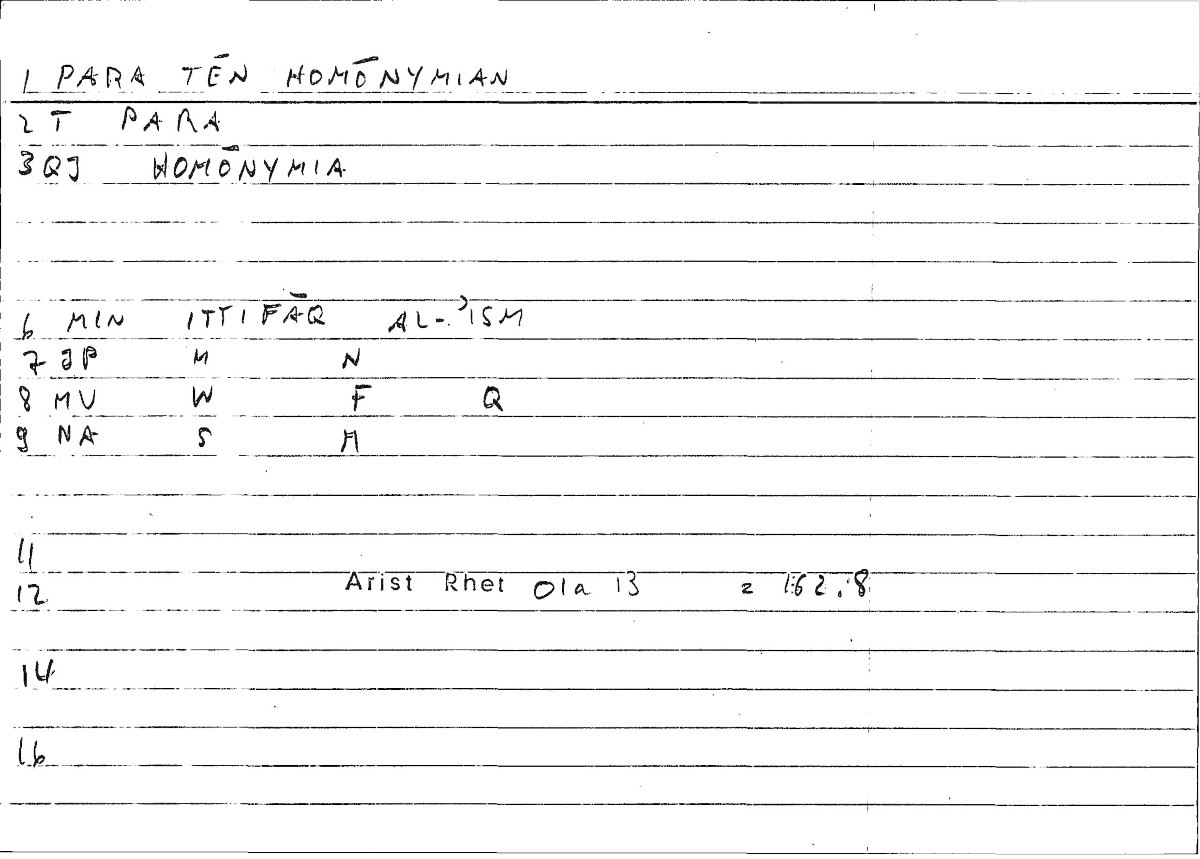 1 PARA TĒN HOMŌNYMIAN
2 T PARA
3 QJ HOMŌNYMIA
6 MIN ITTIFĀQ AL-ʾISM
7 JP M N
8 MU W F Q
9 NA S M
11
12 Arist Rhet 01a 13 = 162.8
14
16